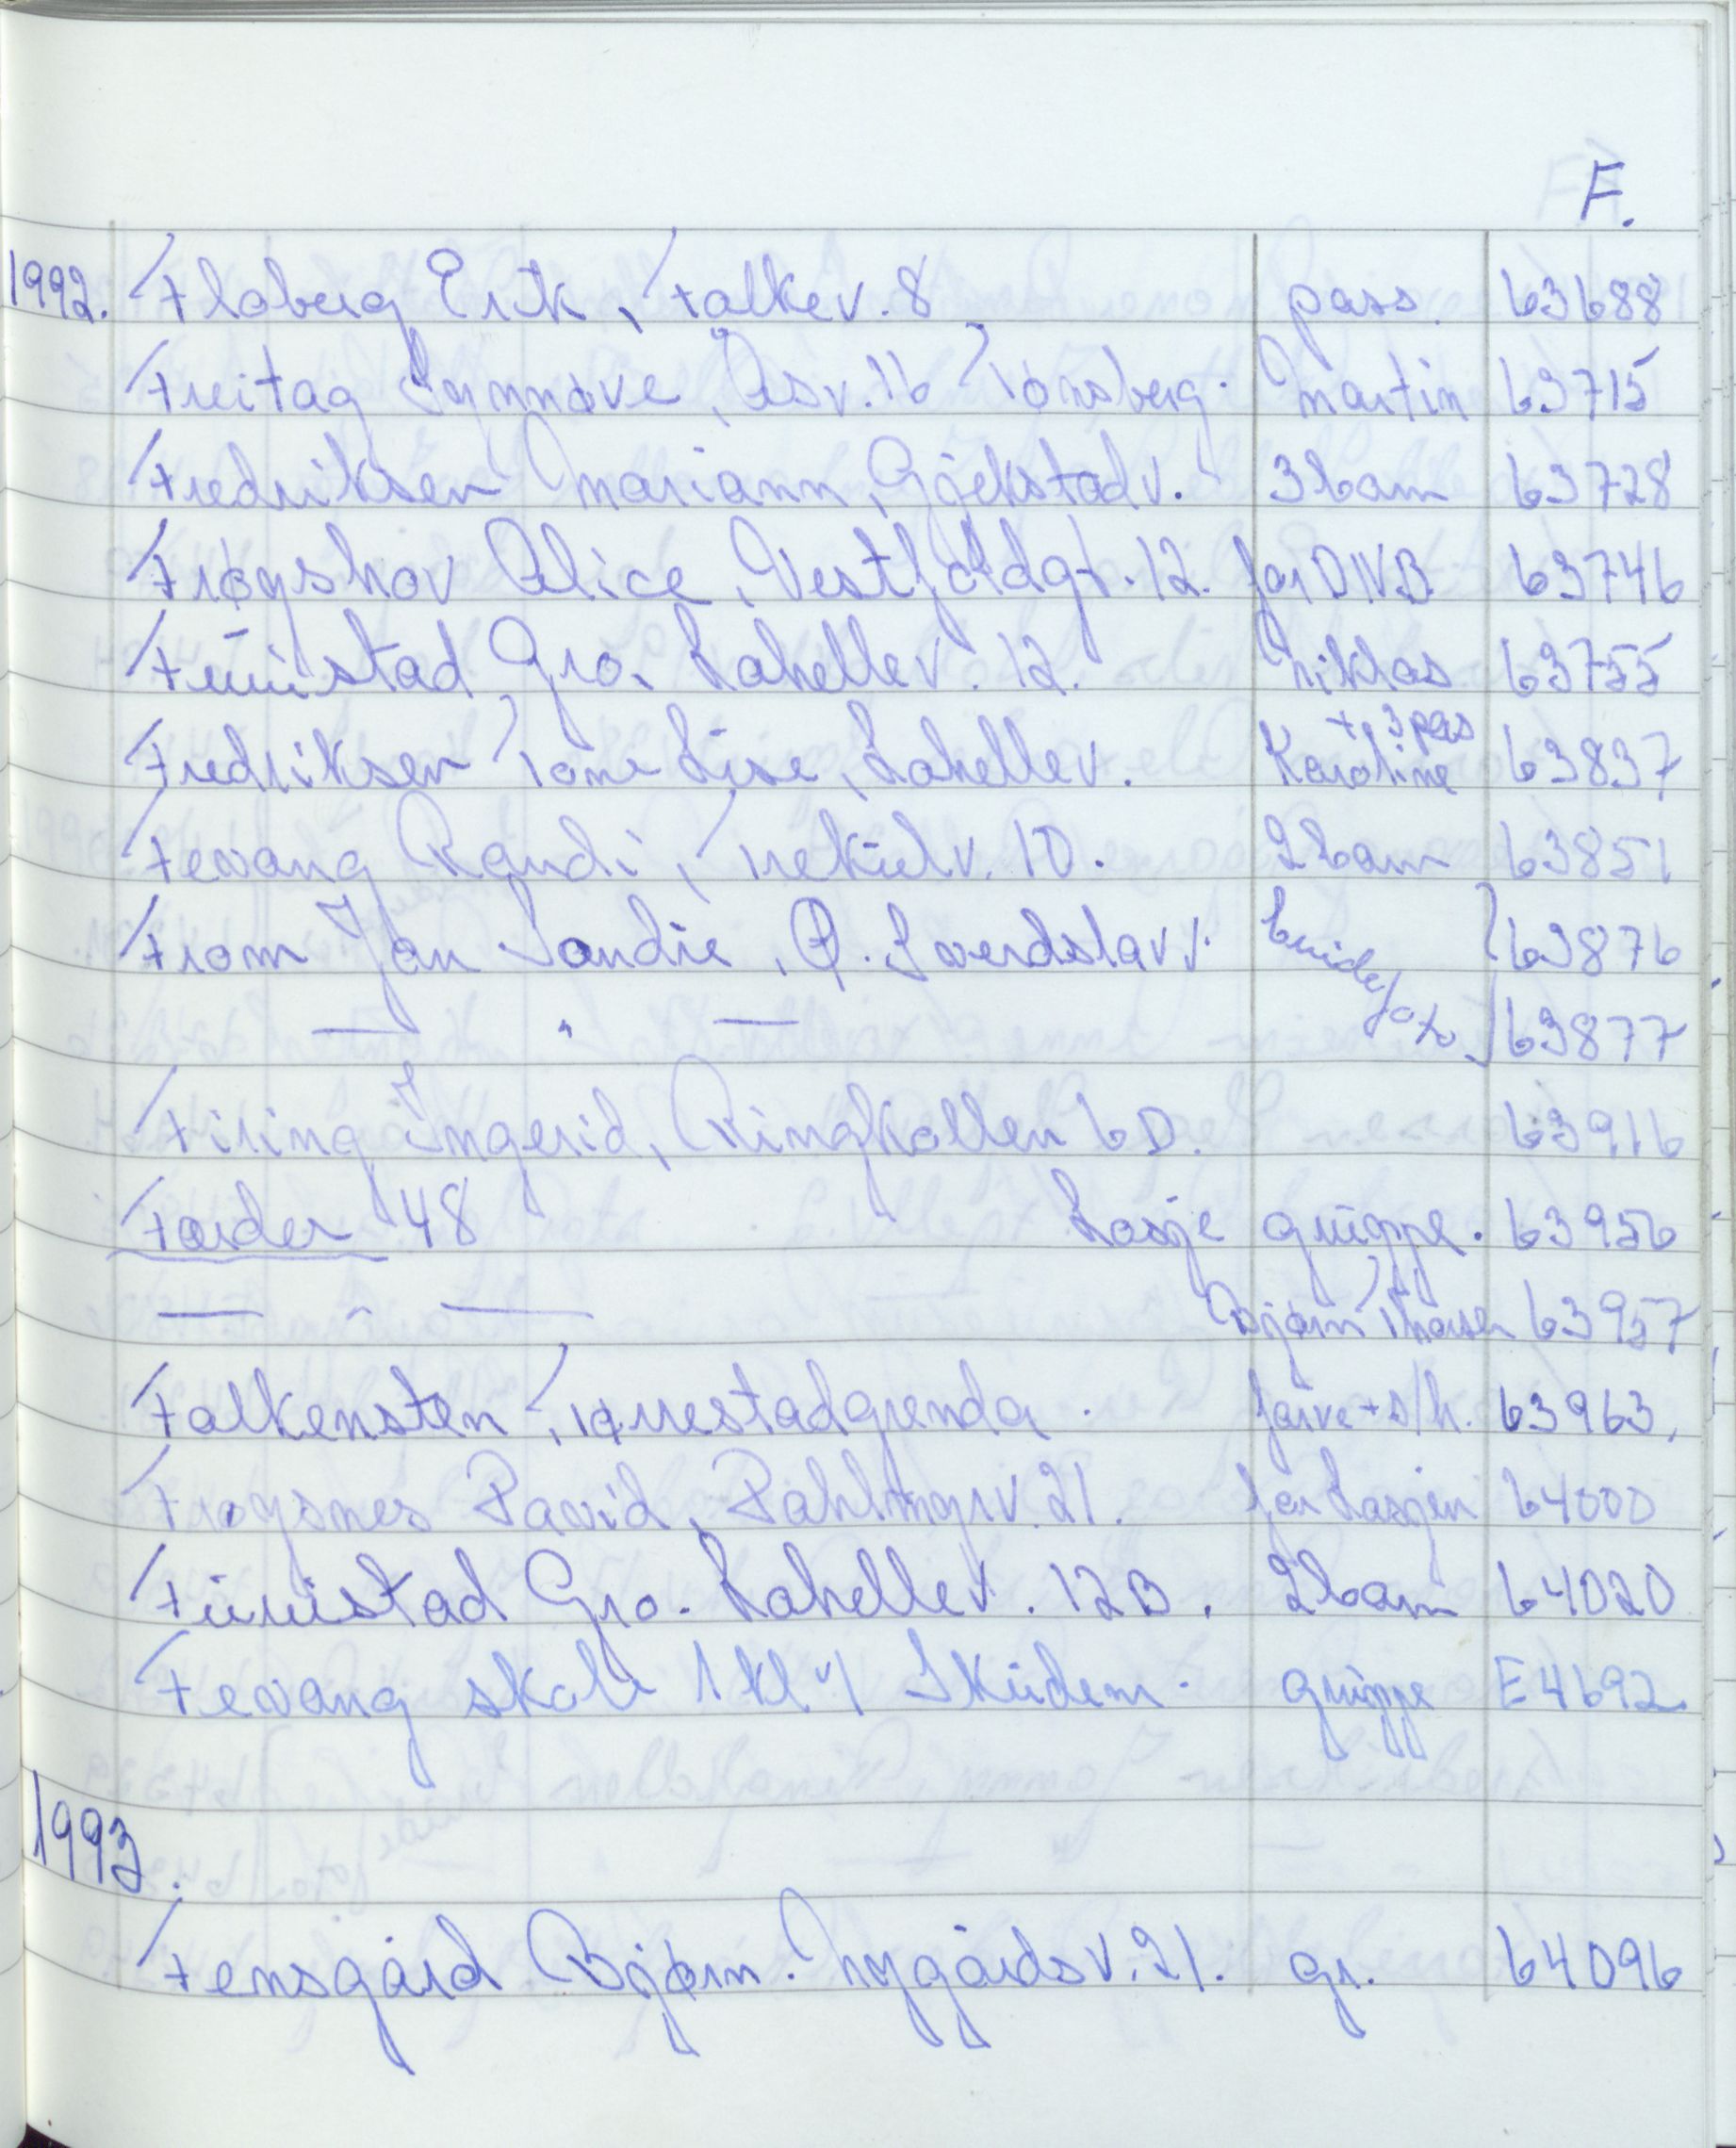 F.
1992. Floberg Erik, Falkev. 8 pass. 63688
Freitag Synnøve, Åsv. 16 Tønsberg. Martin 63715
Fredriksen Mariann, Gjekstadv. 3 barn 63728
Frøyshov Alice, Vestfoldgt. 12. for DNB 63746
Furustad Gro. Lahellev. 12. Niklas 63755
+ 3 pas
Fredriksen Tone Lise, Lahellev. Karoline 63837
Fevang Randi, Frekulv. 10. 2 barn 63851
From Jan Sandie, P. Sverdslavv. brude 63876
— " — foto 63877
Firing Ingerid, Ringkollen 6D. 63916
Færder 48 Losje gruppe. 63956
— " — Bjørn Thorsen 63957
Falkensten, Furustadgrenda. farve + s/h. 63963.
Frøysnes David, Dahlmyrv. 21. for Losjen 64000
Furustad Gro. Lahellev. 12B. 2 barn 64020
Fevang skole 1 kl v/ Skudem. gruppe E4692
1993.
Fensgård Bjørn. Nygårdsv. 21. gr. 64096